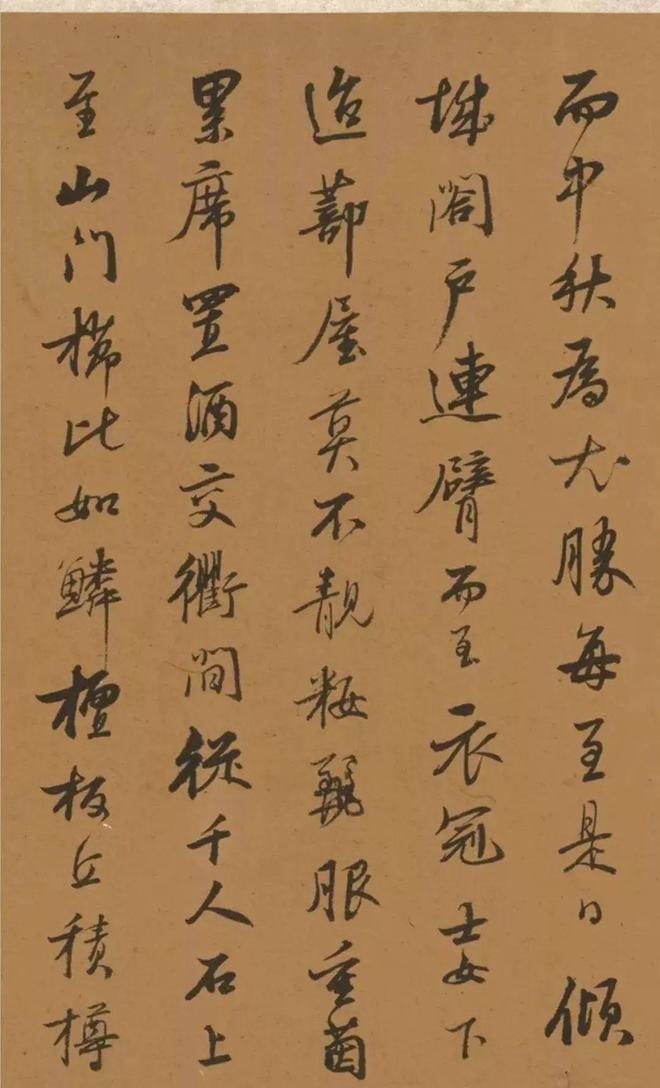 而中秋為尤勝每至是日傾
城闔戶連臂而至衣冠士女下
迨蔀屋莫不靚粧麗服重茵
累席置酒交衢間從千人石上
至山門櫛比如鱗檀板丘積樽